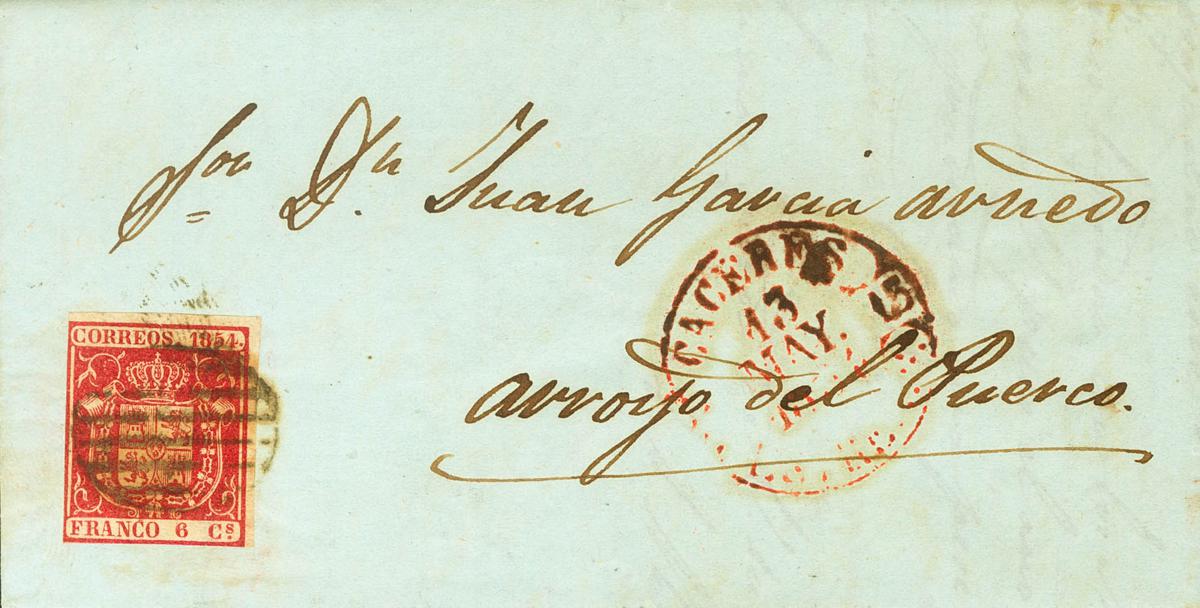 Sor Dn Juan Garcia arnedo
CACERES (5)
13
MAY.
arroyo del Puerco.
CORREOS 1854.
FRANCO 6 Cs.